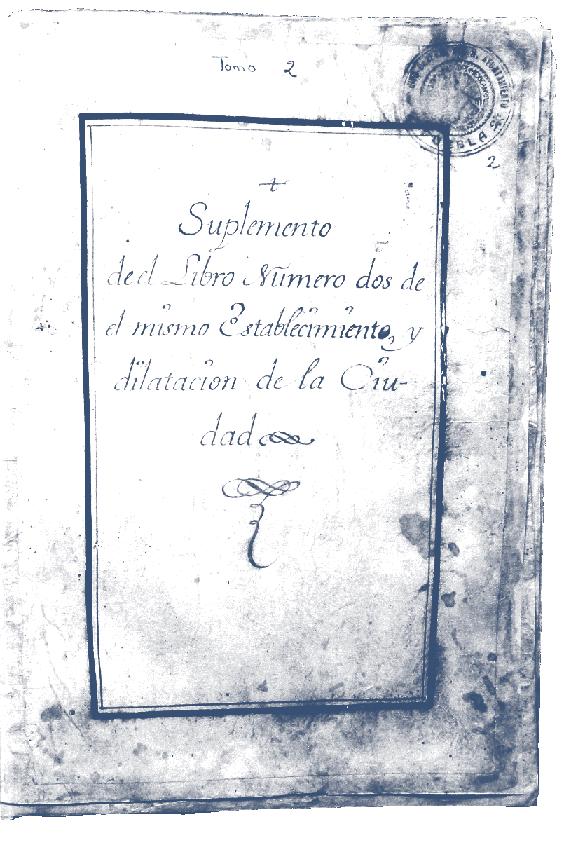 Tomo 2
PUEBLA
2
+
Suplemento
de el Libro Número dos de
el mismo Establecimiento, y
dilatacion de la Ciu-
dad